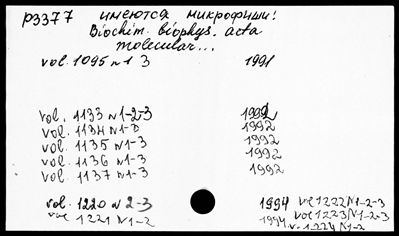 р3377 имеются микрофиши!
Biochim. biophys. acta
molecular...
vol. 1095 n1 3 1991
vol. 1133 n1-2-3 1992
vol. 1134 n1-3 1992
vol. 1135 n1-3 1992
vol. 1136 n1-3 1992
vol. 1137 n1-3 1992
vol. 1220 n 2-3 1994 vol 1222 N1-2-3
vol 1221 n1-2 1994 vol 1223 N1-2-3
v. 1224 N1-2